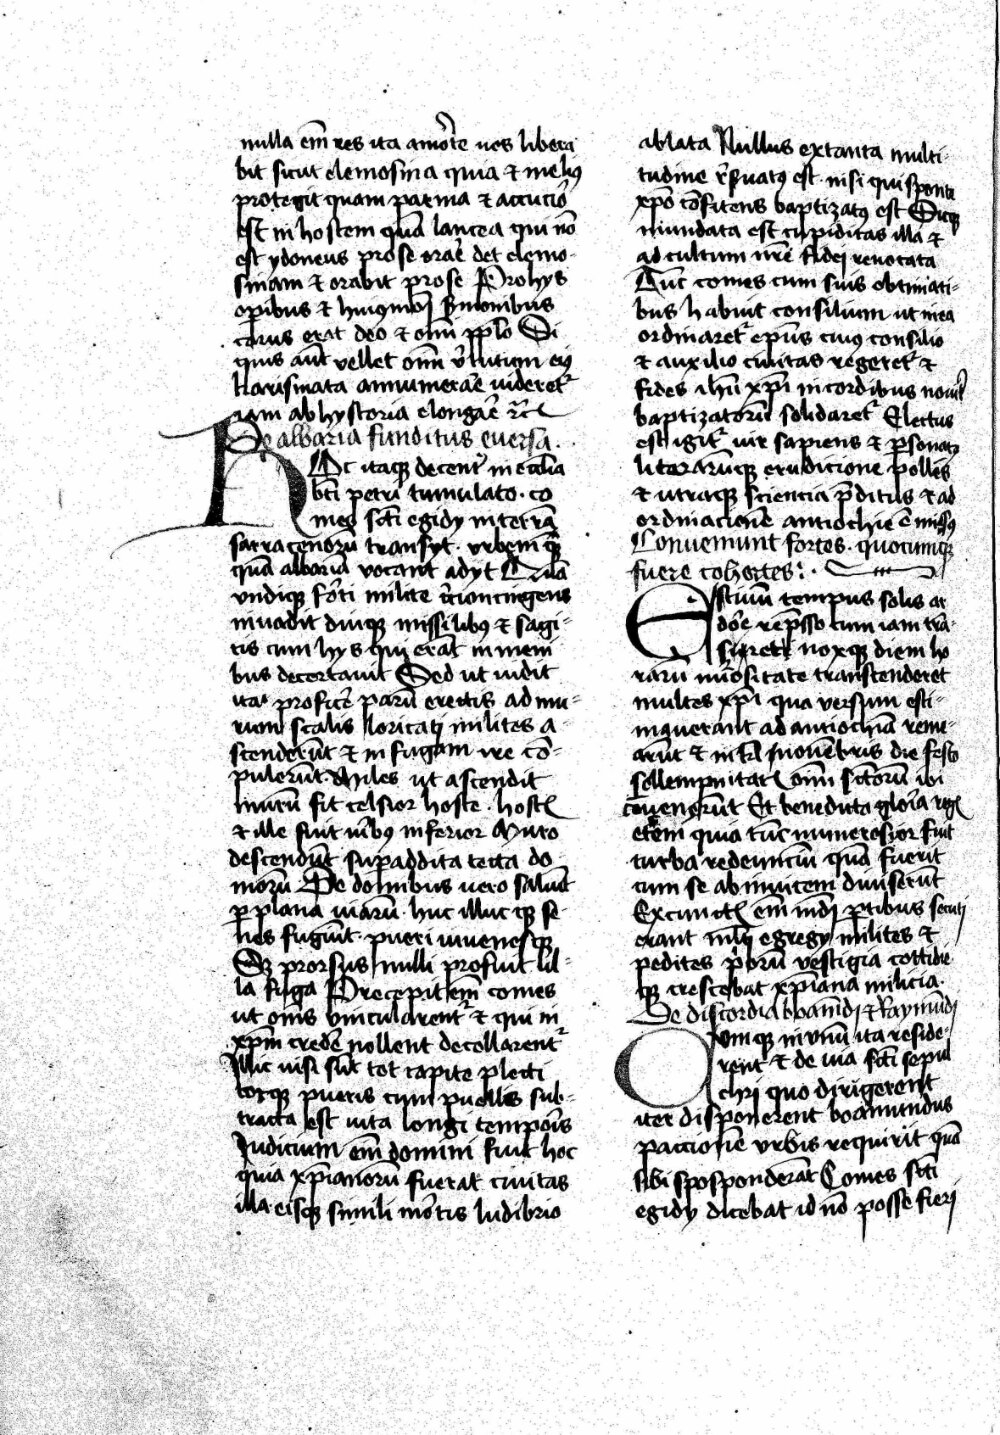 nulla em̄ res ita a morte uos libera
bit sicut elemosina quia et melius
protegit quam parma et accucior
est in hostem quā lancea qui nō
est ydoneus pro se orare det elemo-
sinam et orabit pro se Pro hys
opibus et huiusmodi sermonibus
carus erat deo et om̄i pp̄lo Si
quis aūt vellet om̄m virtutum eius
karismata annumerare videretur
iam ab hystoria elongare etc
De albaria funditus euersa.
Ac itaque decenter in ecclīa
bt̄i petri tumulato. co
mes sct̄i egidy in terrā
sarracenorū transyt. urbem quē
quā albariā vocant adyt Quā
vndique forti milite circioncingens
inuadit diuque missilibus et sagi-
tis cum hys qui erāt in meni
bus decertauit Sed ut uidit
ita proficere parū erectis ad mu-
rum scalis loricati milites a-
scenderūt et in fugam ire cō-
pulerūt. Miles ut ascendit
murū fit celsior hoste. hostis
et ille fuit uerbus inferior Muro
descendūt supaddita tecta do
morū De domibus uero saliūt
per plana uiarū. huc illuc que se-
nes fugiūt. pueri iuuenesque
Sed prorsus nulli profuit il-
la fuga Precepit em̄ comes
ut om̄s vincularentur et qui in
xp̄m credere nollent decollarentur
Illic uisi sūt tot capite plecti
totque pueris cum puellis sub-
tracta est uita longi temporis
Iudicium em̄ domini fuit hoc
quia xp̄ianorū fuerat ciuitas
illa eisque simili mortis ludibrio
ablata Nullus ex tanta multi-
tudine reseruatus est. nisi qui sponte
xp̄o cōfitens baptizatus est Sicque
mundata est cupiditas illa et
ad cultum nr̄e fidei reuocata
Tūc comes cum suis obtimati-
bus habuit consilium ut in ea
ordinaretur ep̄us cuius consilio
et auxilio ciuitas regeretur et
fides ihū xp̄i in cordibus nouiter
baptizatorū solidaretur Electus
est igitur uir sapiens et personatus
litterarūque erudicione pollēs
et utraque sciencia p̄ditus et ad
ordinacionē antiochie ē missus
Conuemunt fortes. quocumque
fuere cohertes:.
Estiuū tempus solis ar
dore rep̄sso cum iam trā-
siret noxque diem ho
rarū nūositate transcenderet
milites xp̄i qua versum esti-
mauerant ad antiochiā remē-
arūt et in kl nouēbris die festo
sollempnitatis om̄i sct̄orū ibi
cōuenerūt Et benedicta gloria regis
etern̄i quia tūc numerosior fuit
turba redeunciū quā fuerit
cum se ab inuicem diuiserūt
Ex cunctis em̄ mūdi partibus secuti
erant multi egregy milites et
pedites priorū vestigia cottidie
que crescebat xp̄iana milicia.
De discordia boamūdi et Raymūdi
Cumque in vnū ita reside-
rent et de uia sct̄i sepul
chri quo dirigerent
iter disponerent boamundus
paccionē vrbis requirit quā
sibi spospondērāt Comes sct̄i
egidy dicebat id nō posse fieri